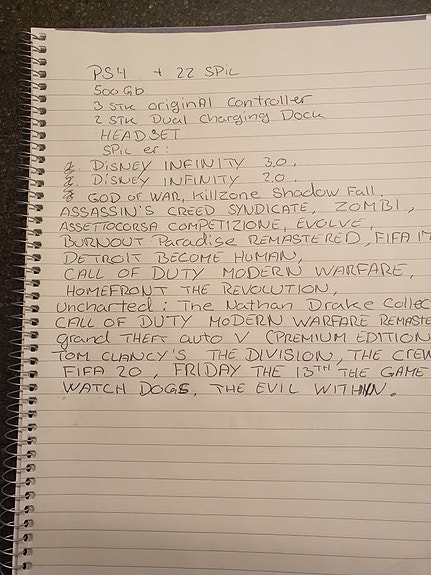 PS4 + 22 SPiL
500Gb
3 STK originAl Controller
2 STK Dual Charging Dock
HEADSET
SPiL er:
DiSNEY INFINITY 3.0.
DiSNEY INFINITY 2.0.
GOD OF WAR, Killzone Shadow Fall,
ASSASSIN'S CREED SYNDICATE, ZOMBI,
ASSETTOCORSA COMPETIZIONE, EVOLVE,
BURNOUT Paradise REMASTERED, FIFA 17
DETROIT BECOME HUMAN,
CALL OF DUTY MODERN WARFARE,
HOMEFRONT THE REVOLUTION,
Uncharted: The Nathan Drake Collec
CALL OF DUTY MODERN WARFARE REMASTE
grand THEFT auto V (PREMIUM EDITION
TOM CLANCY'S THE DIVISION, THE CREW
FIFA 20, FRIDAY THE 13TH THE GAME
WATCH DOGS, THE EVIL WITHIN.